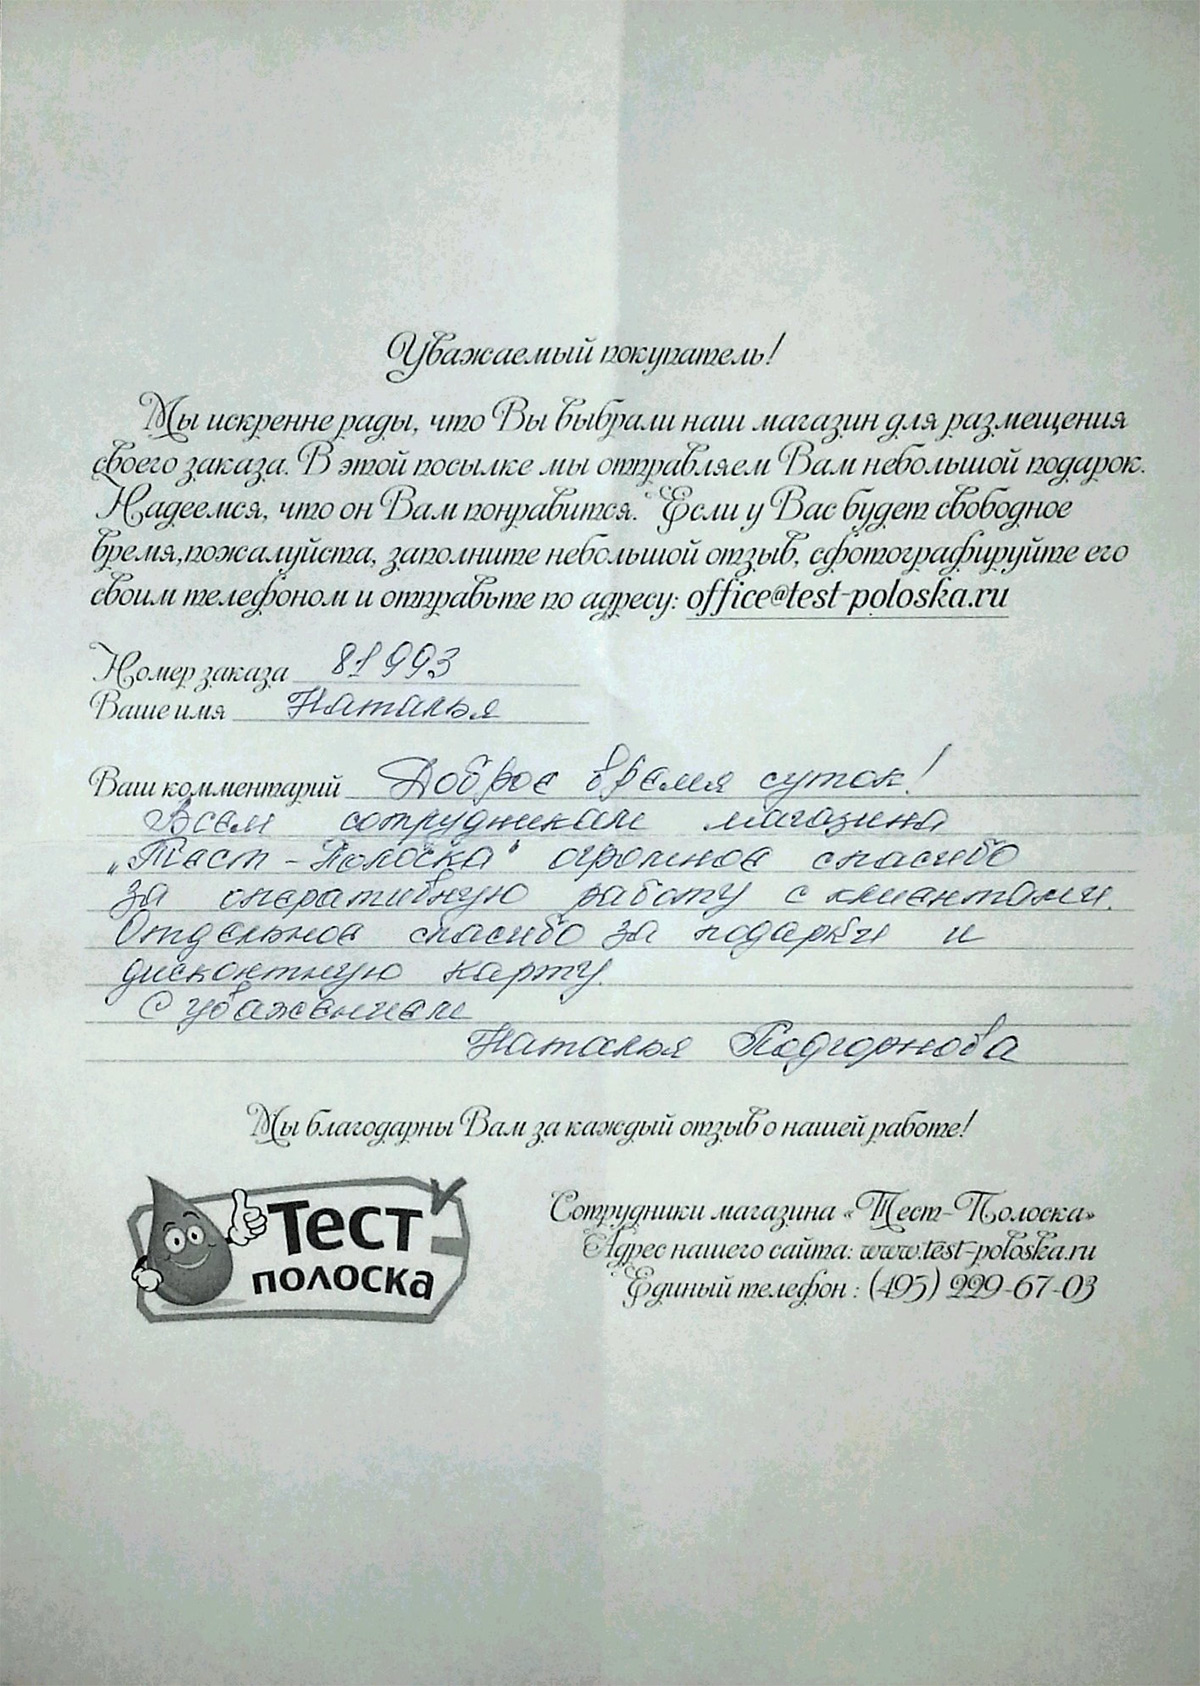 Уважаемый покупатель!
Мы искренне рады, что Вы выбрали наш магазин для размещения
своего заказа. В этой посылке мы отправляем Вам небольшой подарок.
Надеемся, что он Вам понравится. Если у Вас будет свободное
время,пожалуйста, заполните небольшой отзыв, сфотографируйте его
своим телефоном и отправьте по адресу: office@test-poloska.ru
Номер заказа 81993
Ваше имя Наталья
Ваш комментарий Доброе время суток!
Всем сотрудникам магазина
„Тест-Полоска" огромное спасибо
за оперативную работу с клиентами.
Отдельное спасибо за подарки и
дисконтную карту.
С уважением
Наталья Подгорнова
Мы благодарны Вам за каждый отзыв о нашей работе!
Тест
полоска
Сотрудники магазина «Тест-Полоска»
Адрес нашего сайта: www.test-poloska.ru
Единый телефон : (495) 229-67-03